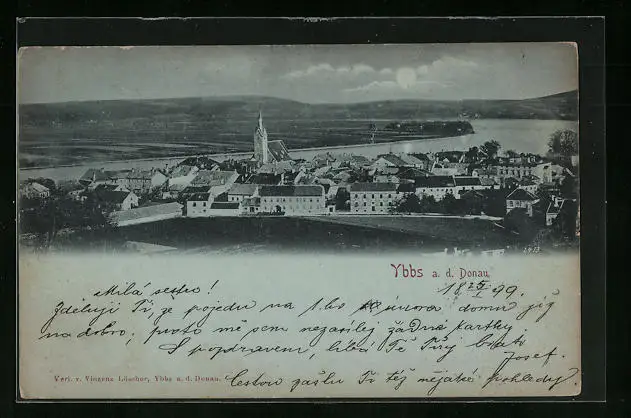 Ybbs a. d. Donau
18 25/I 99.
Milá sestro!
Zděluji Ti, že pojedu na 1. února domů již
na dobro, proto mě sem nezasílej žádné kartky
S pozdravem, líbá Tě Tvůj bratr
Josef.
Verl. v. Vinzenz Löscher, Ybbs a. d. Donau.
Cestou zašlu Ti též nějaké pohledy.